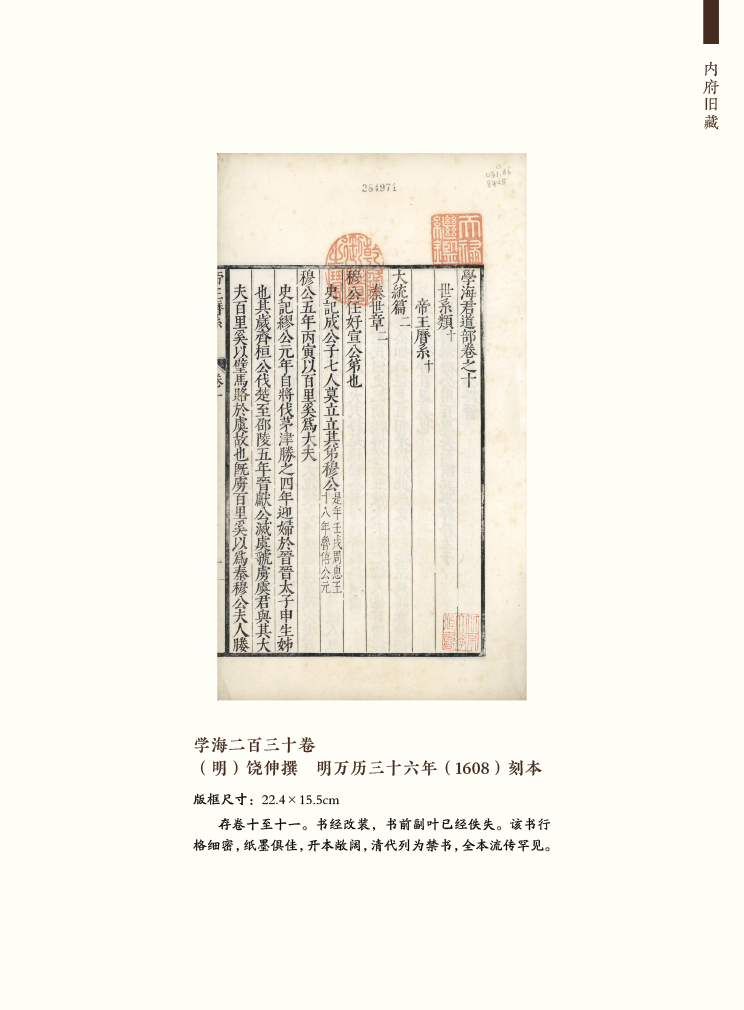 内府旧藏
264971
天禄繼鑑
乾隆御覽之寶
學海君道部卷之十
世系類十
帝王曆系十
大統篇二
秦世章二
穆公任好宣公第也
史記成公子七人莫立立其第穆公是年壬戌周惠王十八年魯僖公元
穆公五年丙寅以百里奚爲大夫
史記繆公元年自將伐茅津勝之四年迎婦於晉晉太子申生姊
也其歲齊桓公伐楚至邵陵五年晉獻公滅虞虢虜虞君與其大
夫百里奚以璧馬賂於虞故也旣虜百里奚以爲秦穆公夫人媵
学海二百三十卷
（明）饶伸撰　明万历三十六年（1608）刻本
版框尺寸：22.4×15.5cm
存卷十至十一。书经改装，书前副叶已经佚失。该书行
格细密，纸墨俱佳，开本敞阔，清代列为禁书，全本流传罕见。